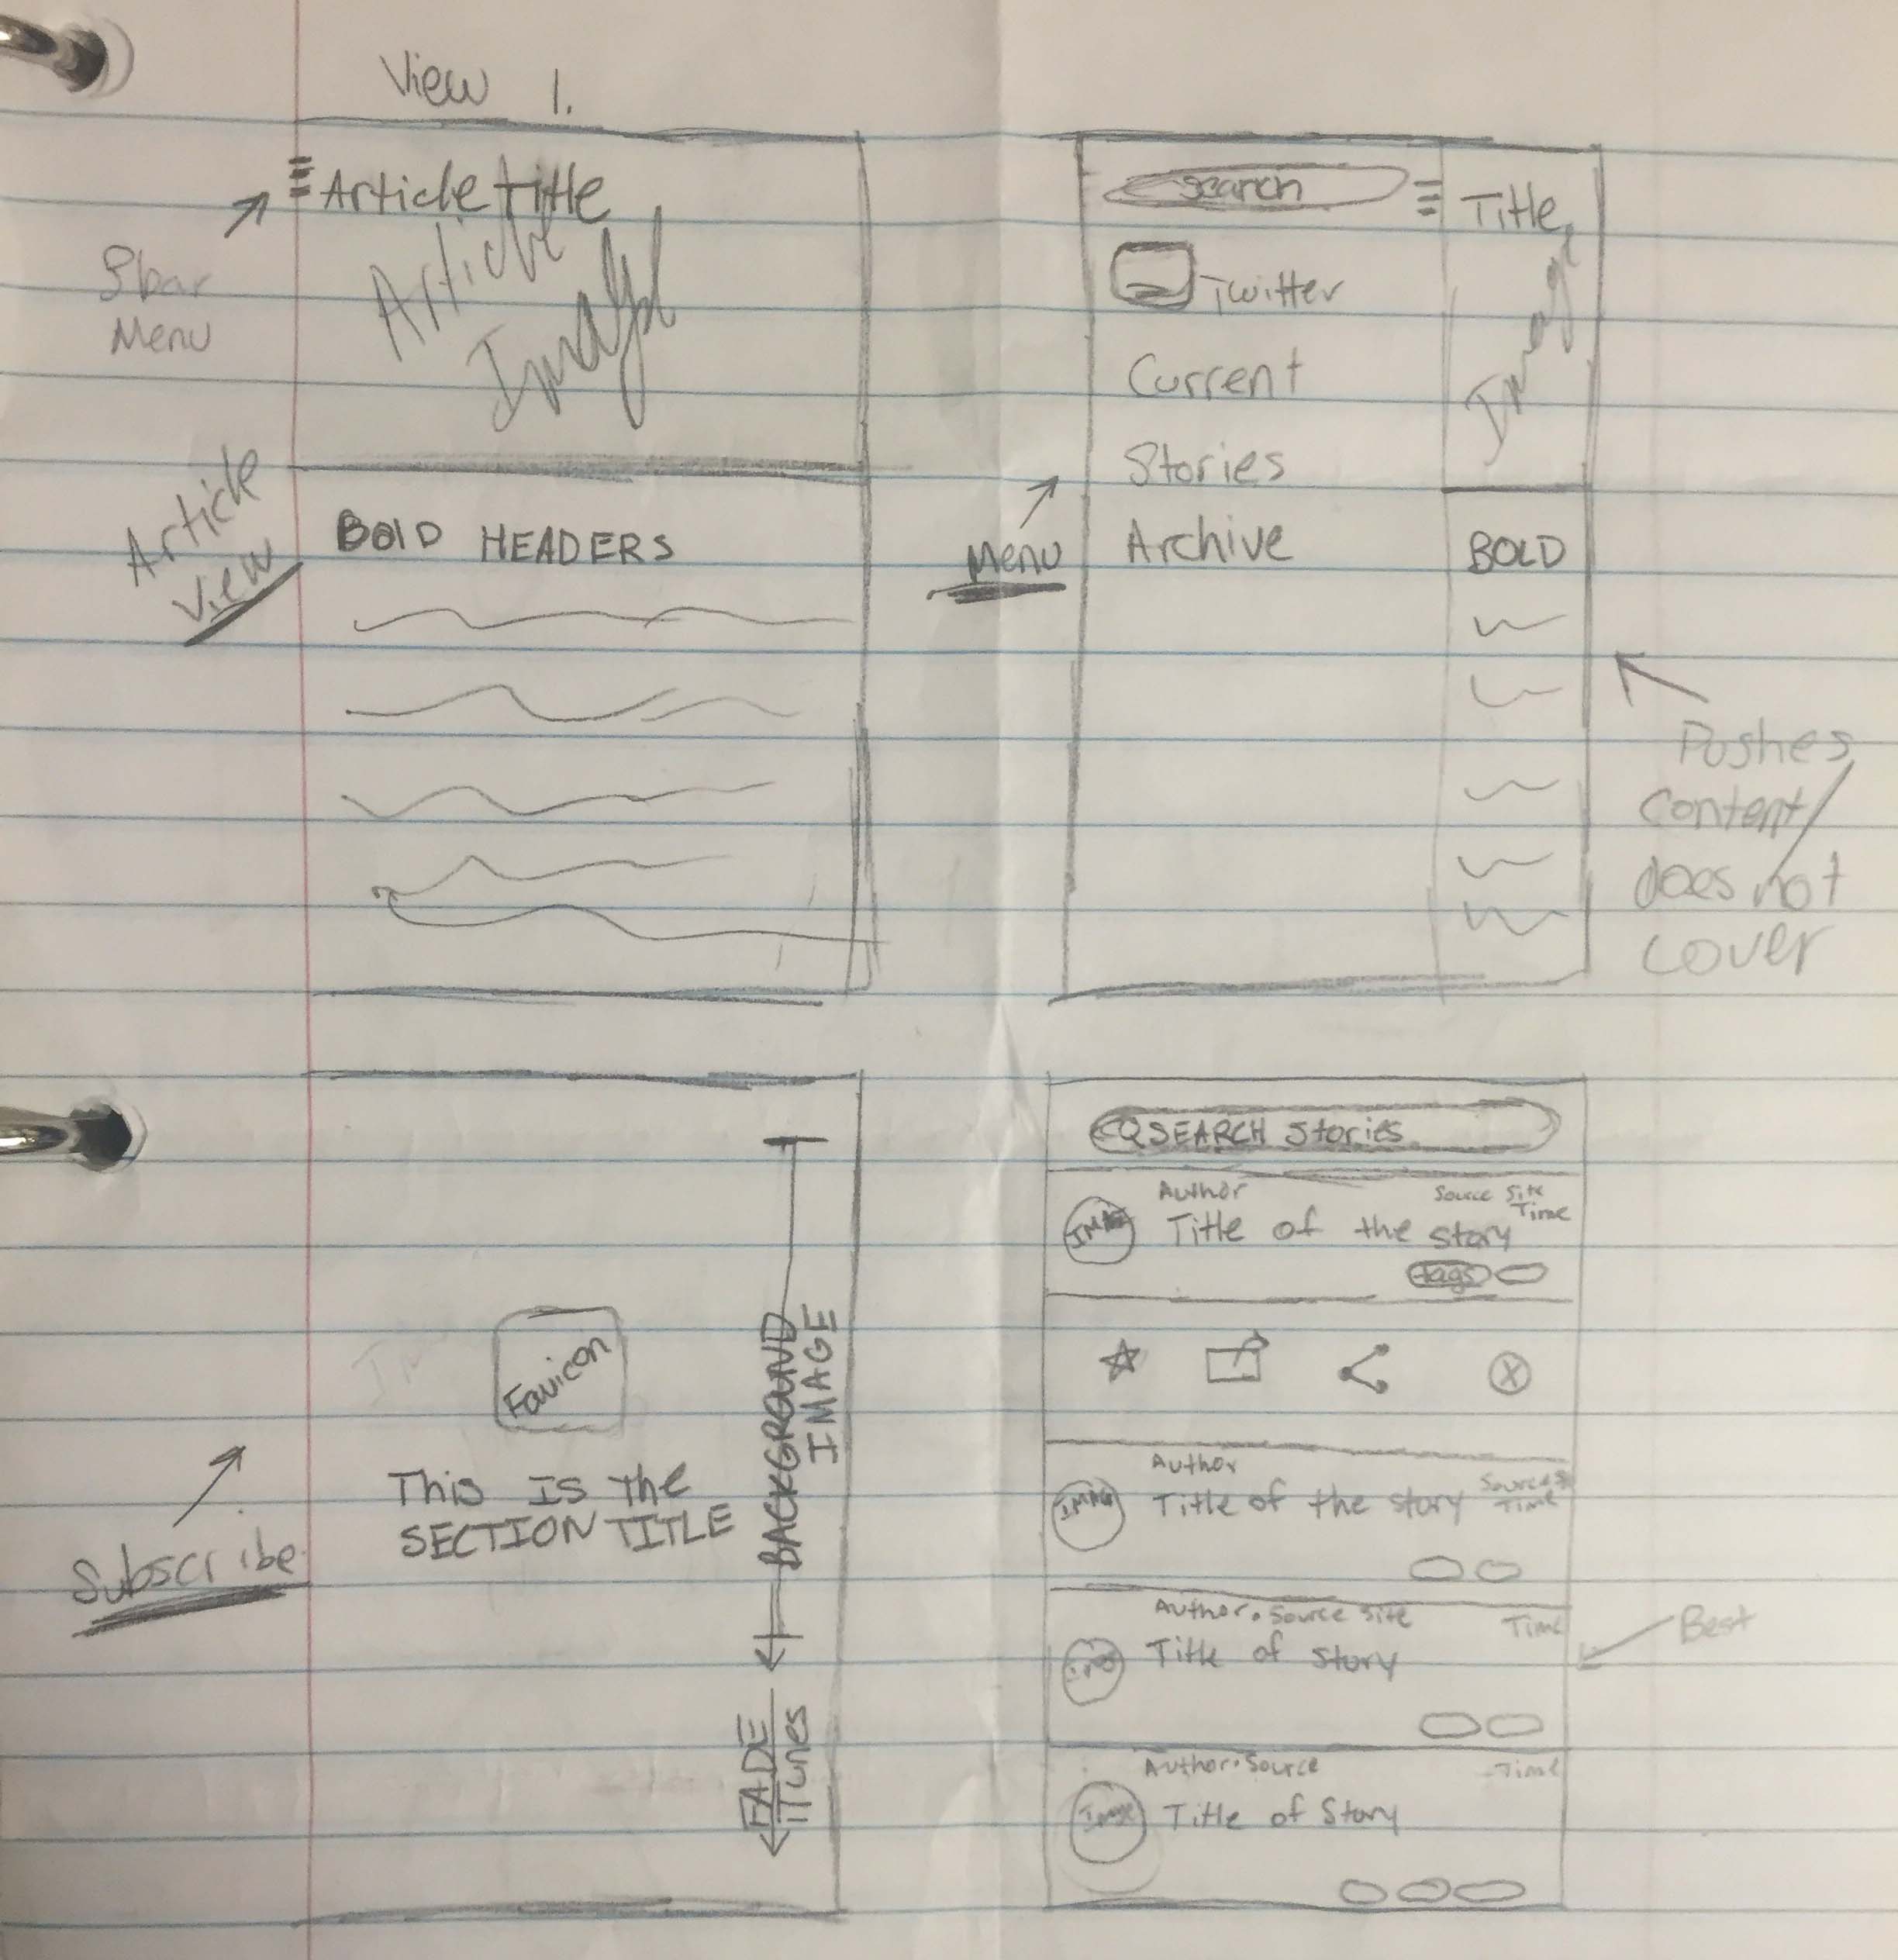 View 1.
Article title
Article
Image
3 bar
Menu
Article
View
BOlD HEADERS
search
Title
Image
Twitter
Current
Stories
Archive
Menu
BOLD
Pushes
content/
does not
cover
Favicon
This IS the
SECTION TITLE
BACKGROUND
IMAGE
FADE
iTunes
Subscribe
SEARCH Stories
Author
Source Site
Time
IMAG
Title of the story
tags
Author
Source S
Time
IMAG
Title of the story
Author • Source Site
Time
Title of story
Best
Author • Source
Time
Image
Title of Story